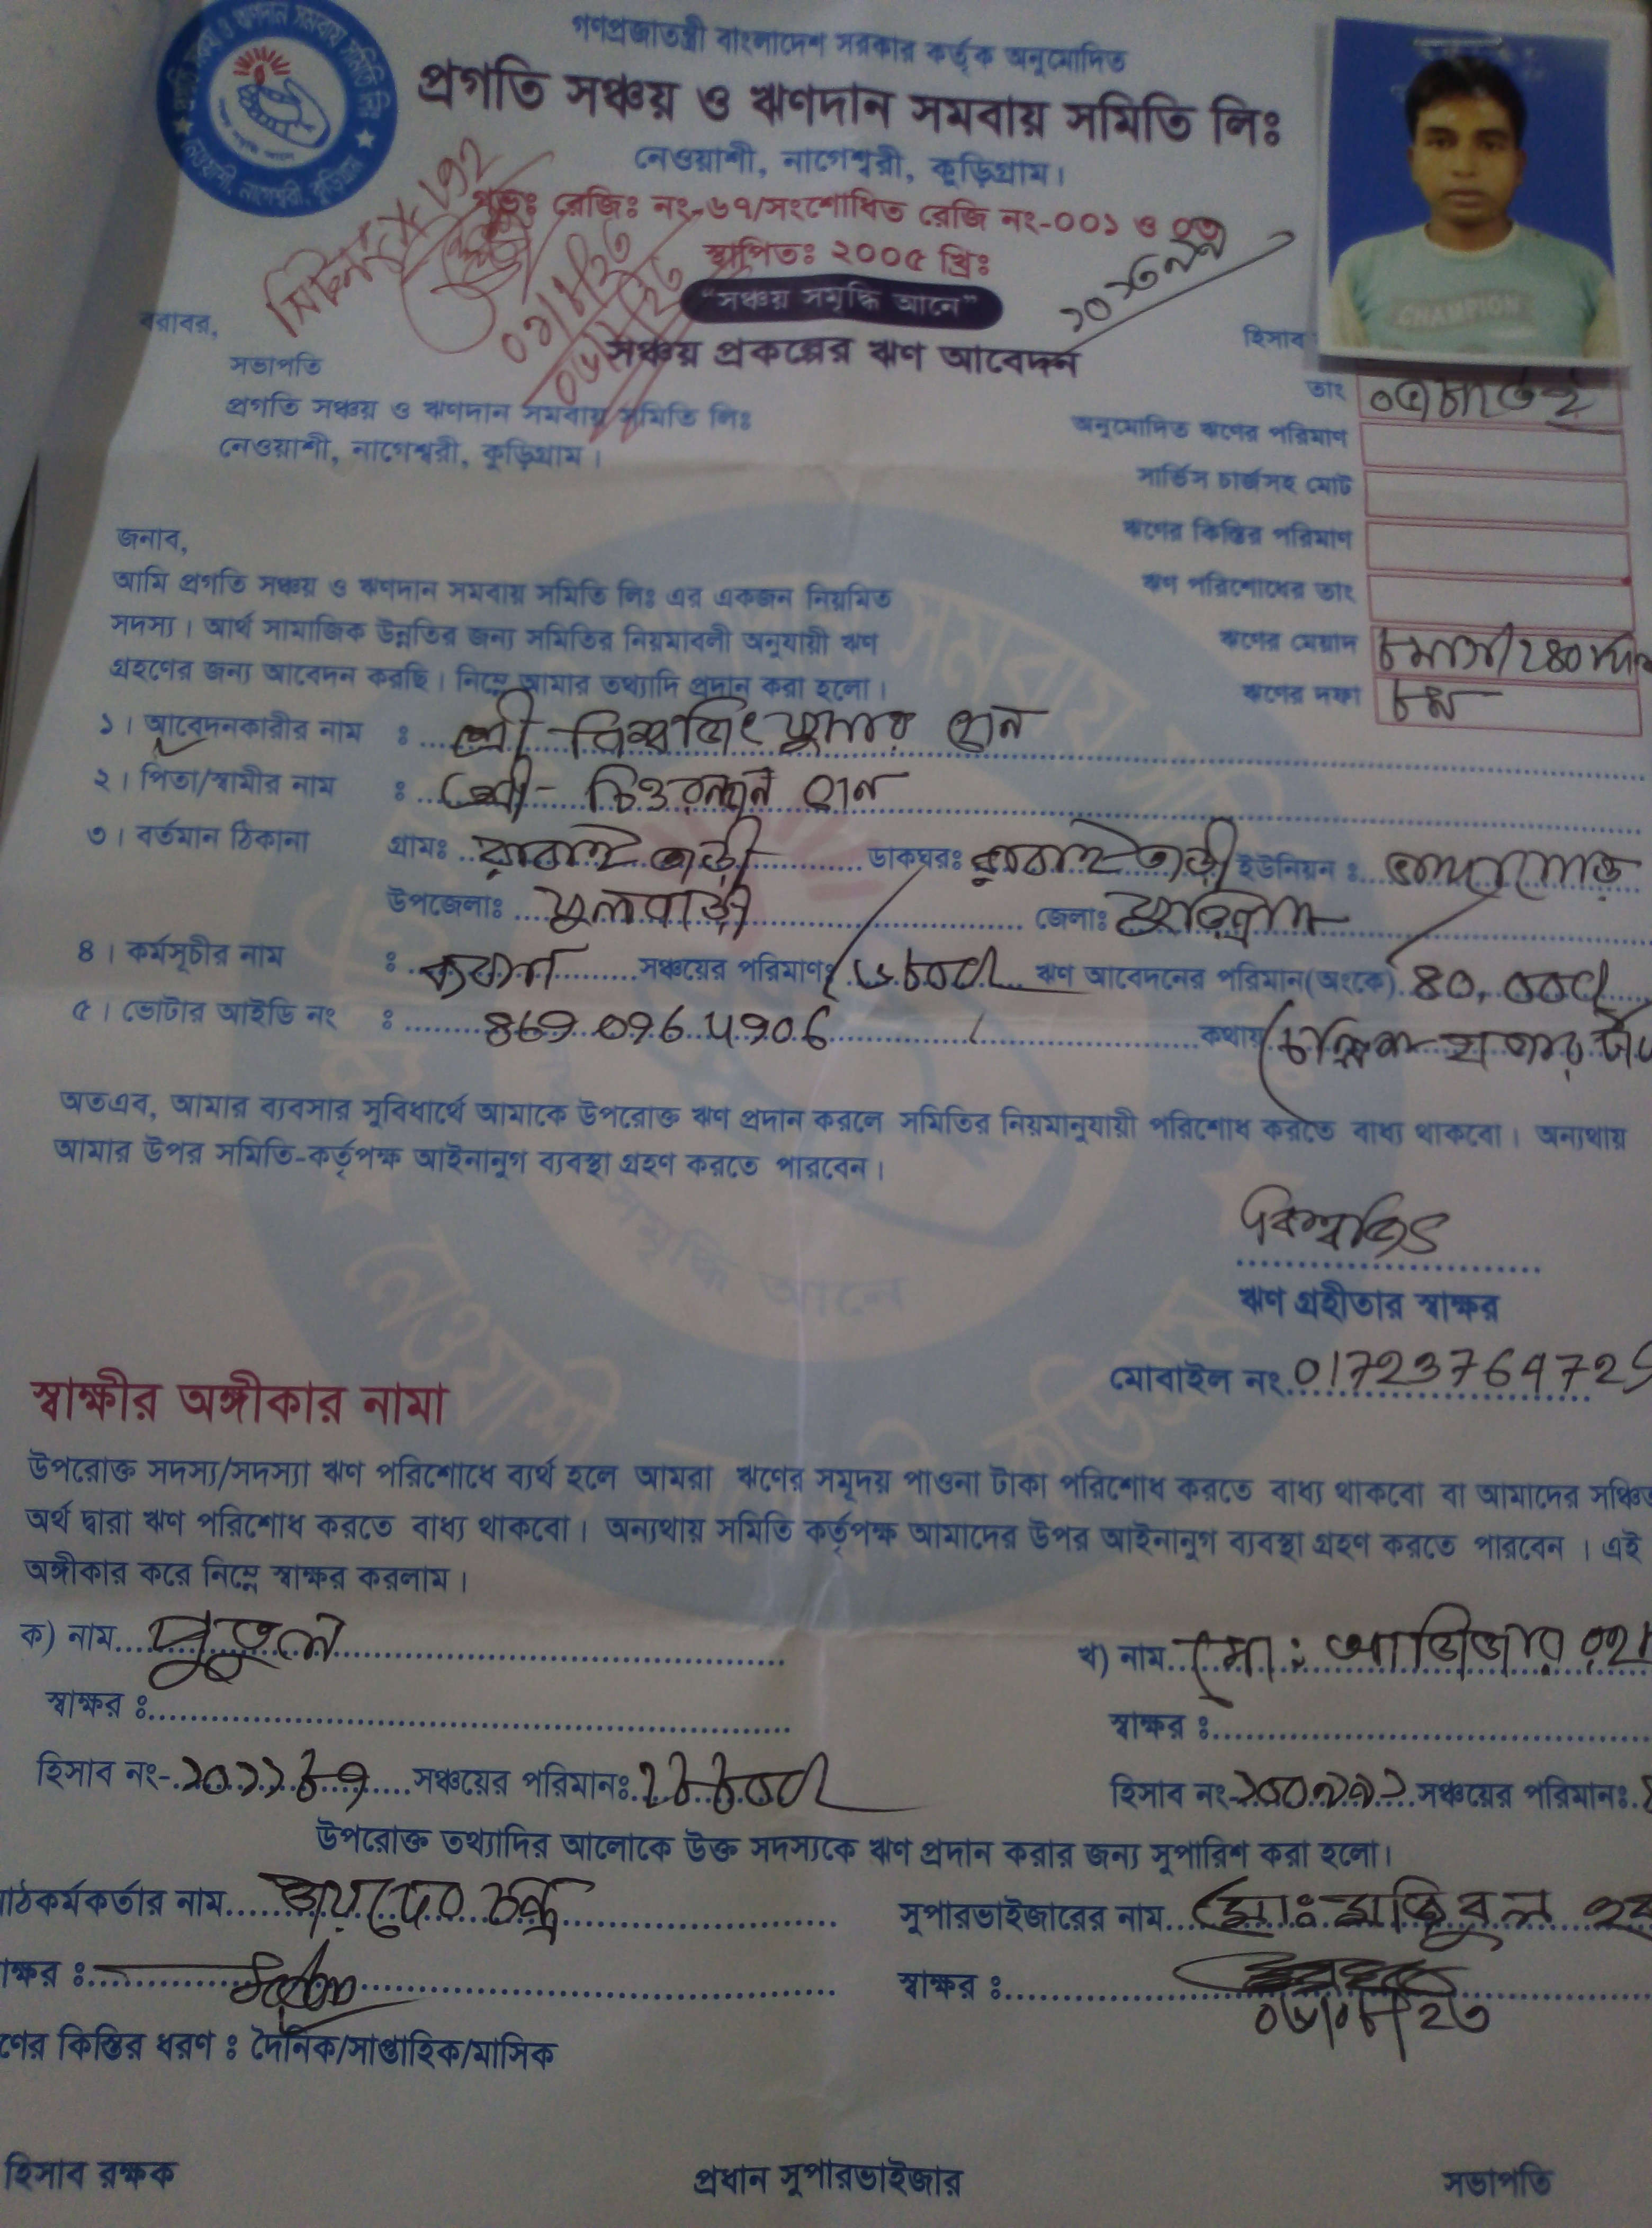 প্রগতি সঞ্চয় ও ঋণদান সমবায় সমিতি লিঃ
নেওয়াশী, নাগেশ্বরী, কুড়িগ্রাম
গণপ্রজাতন্ত্রী বাংলাদেশ সরকার কর্তৃক অনুমোদিত
প্রগতি সঞ্চয় ও ঋণদান সমবায় সমিতি লিঃ
নেওয়াশী, নাগেশ্বরী, কুড়িগ্রাম।
গভঃ রেজিঃ নং-৬৭/সংশোধিত রেজি নং-০০১ ও ০৩
স্থাপিতঃ ২০০৫ খ্রিঃ
"সঞ্চয় সমৃদ্ধি আনে"
সঞ্চয় প্রকল্পের ঋণ আবেদন
CHAMPION
বরাবর,
সভাপতি
প্রগতি সঞ্চয় ও ঋণদান সমবায় সমিতি লিঃ
নেওয়াশী, নাগেশ্বরী, কুড়িগ্রাম।
হিসাব
তাং
অনুমোদিত ঋণের পরিমাণ
সার্ভিস চার্জসহ মোট
ঋণের কিস্তির পরিমাণ
ঋণ পরিশোধের তাং
ঋণের মেয়াদ ৮ মাস/২৪০ দিন
ঋণের দফা ৮ম
জনাব,
আমি প্রগতি সঞ্চয় ও ঋণদান সমবায় সমিতি লিঃ এর একজন নিয়মিত
সদস্য। আর্থ সামাজিক উন্নতির জন্য সমিতির নিয়মাবলী অনুযায়ী ঋণ
গ্রহণের জন্য আবেদন করছি। নিম্নে আমার তথ্যাদি প্রদান করা হলো।
১। আবেদনকারীর নাম : শ্রী বিশ্বজিৎ কুমার সেন
২। পিতা/স্বামীর নাম : শ্রী- চিত্তরঞ্জন সেন
৩। বর্তমান ঠিকানা গ্রামঃ ডাকঘরঃ ইউনিয়ন :
উপজেলাঃ ফুলবাড়ী জেলাঃ কুড়িগ্রাম
৪। কর্মসূচীর নাম : সঞ্চয়ের পরিমাণঃ ঋণ আবেদনের পরিমান(অংকে) ৪০,০০০/
৫। ভোটার আইডি নং : কথায় চল্লিশ হাজার
অতএব, আমার ব্যবসার সুবিধার্থে আমাকে উপরোক্ত ঋণ প্রদান করলে সমিতির নিয়মানুযায়ী পরিশোধ করতে বাধ্য থাকবো। অন্যথায়
আমার উপর সমিতি-কর্তৃপক্ষ আইনানুগ ব্যবস্থা গ্রহণ করতে পারবেন।
বিশ্বজিৎ
ঋণ গ্রহীতার স্বাক্ষর
মোবাইল নং
স্বাক্ষীর অঙ্গীকার নামা
উপরোক্ত সদস্য/সদস্যা ঋণ পরিশোধে ব্যর্থ হলে আমরা ঋণের সমূদয় পাওনা টাকা পরিশোধ করতে বাধ্য থাকবো বা আমাদের সঞ্চিত
অর্থ দ্বারা ঋণ পরিশোধ করতে বাধ্য থাকবো। অন্যথায় সমিতি কর্তৃপক্ষ আমাদের উপর আইনানুগ ব্যবস্থা গ্রহণ করতে পারবেন। এই
অঙ্গীকার করে নিম্নে স্বাক্ষর করলাম।
ক) নাম পুতুল খ) নাম মো: আজিজার
স্বাক্ষর : স্বাক্ষর :
হিসাব নং- সঞ্চয়ের পরিমানঃ হিসাব নং- সঞ্চয়ের পরিমানঃ
উপরোক্ত তথ্যাদির আলোকে উক্ত সদস্যকে ঋণ প্রদান করার জন্য সুপারিশ করা হলো।
মাঠকর্মকর্তার নাম জয়দেব চন্দ্র সুপারভাইজারের নাম মোঃ
স্বাক্ষর : স্বাক্ষর :
০৬/০৮/২৩
ঋণের কিস্তির ধরণ : দৈনিক/সাপ্তাহিক/মাসিক
হিসাব রক্ষক প্রধান সুপারভাইজার সভাপতি